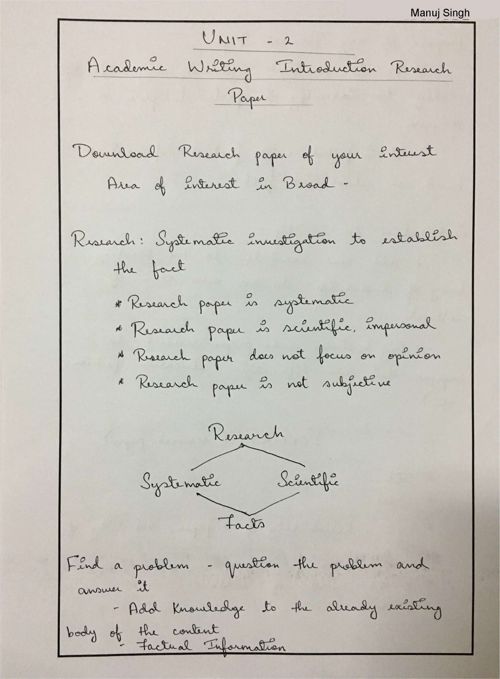 Manuj Singh
UNIT - 2
Academic Writing Introduction Research
Paper
Download Research paper of your interest
Area of interest in Broad -
Research: Systematic investigation to establish
the fact
* Research paper is systematic
* Research paper is scientific, impersonal
* Research paper does not focus on opinion
* Research paper is not subjective
Research
Systematic Scientific
Facts
Find a problem - question the problem and
answer it
- Add Knowledge to the already existing
body of the content
- Factual Information